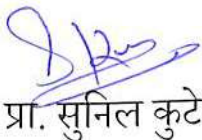 प्रा. सुनिल कुटे